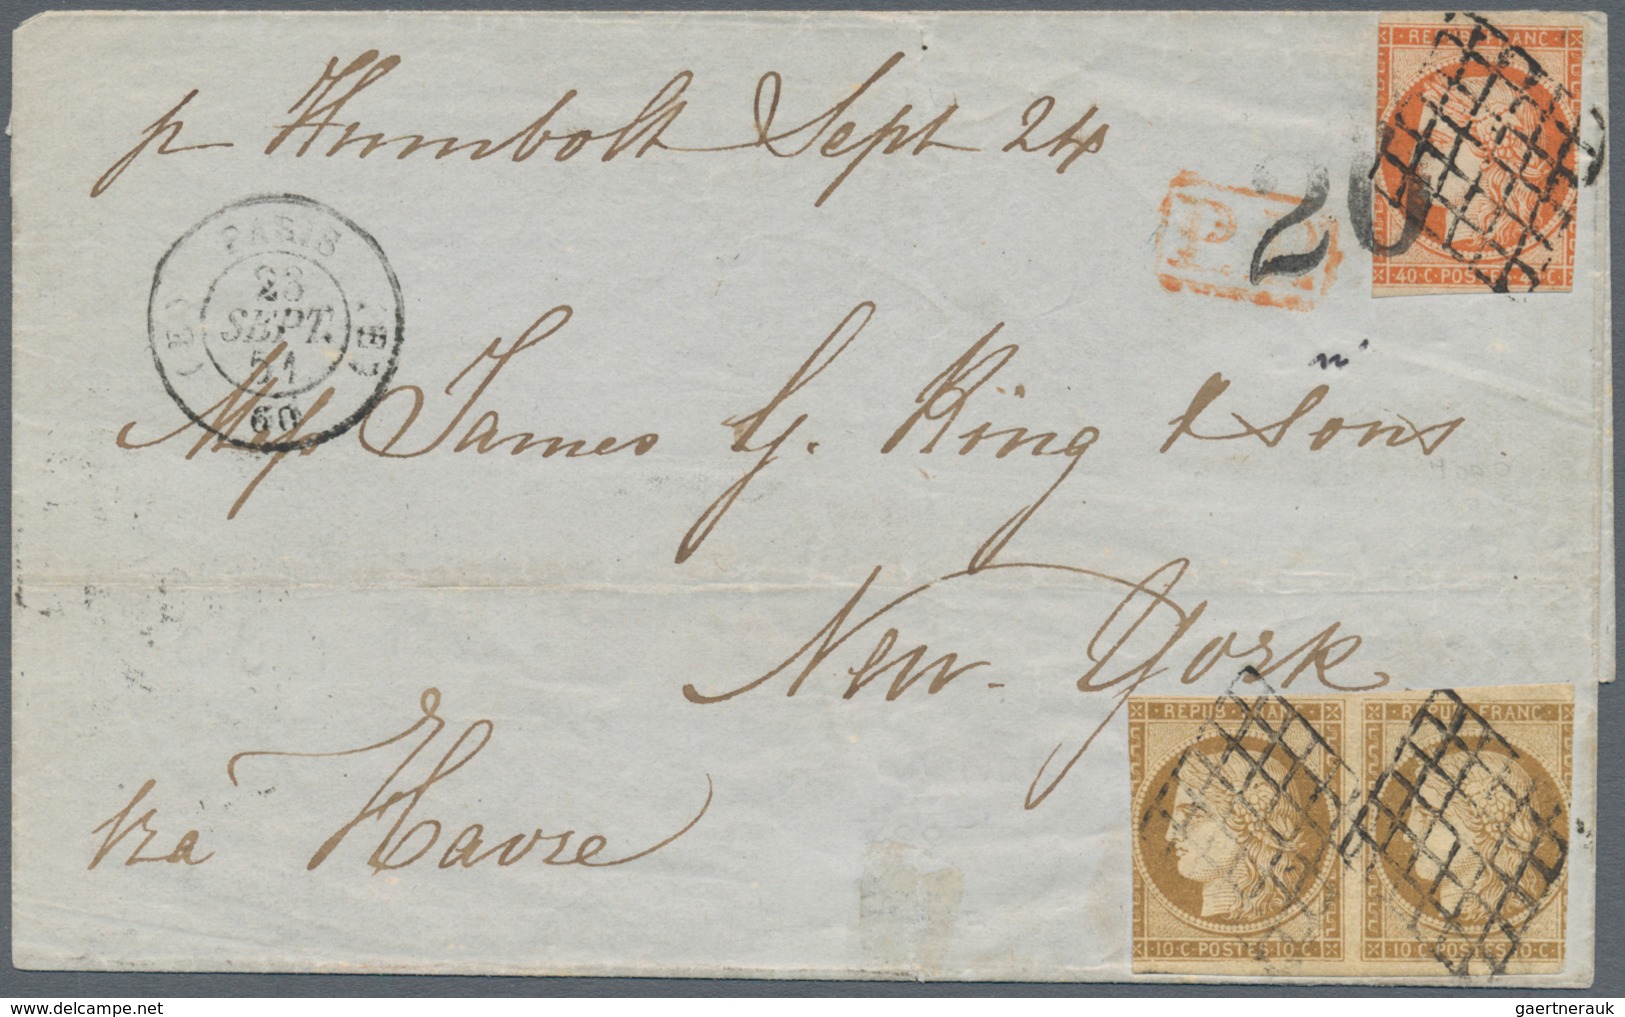 REPUB FRANC
p Humbolt Sept 24
20
P.
40·C·POSTES·40·C
PARIS
(E)
23
SEPT.
51
(E)
60
Mess James G. King & Sons
New York
REPUB FRANC
REPUB FRANC
via Havre
10·C·POSTES·10·C
10·C·POSTES·10·C
gaertnerauk @ delcampe.net